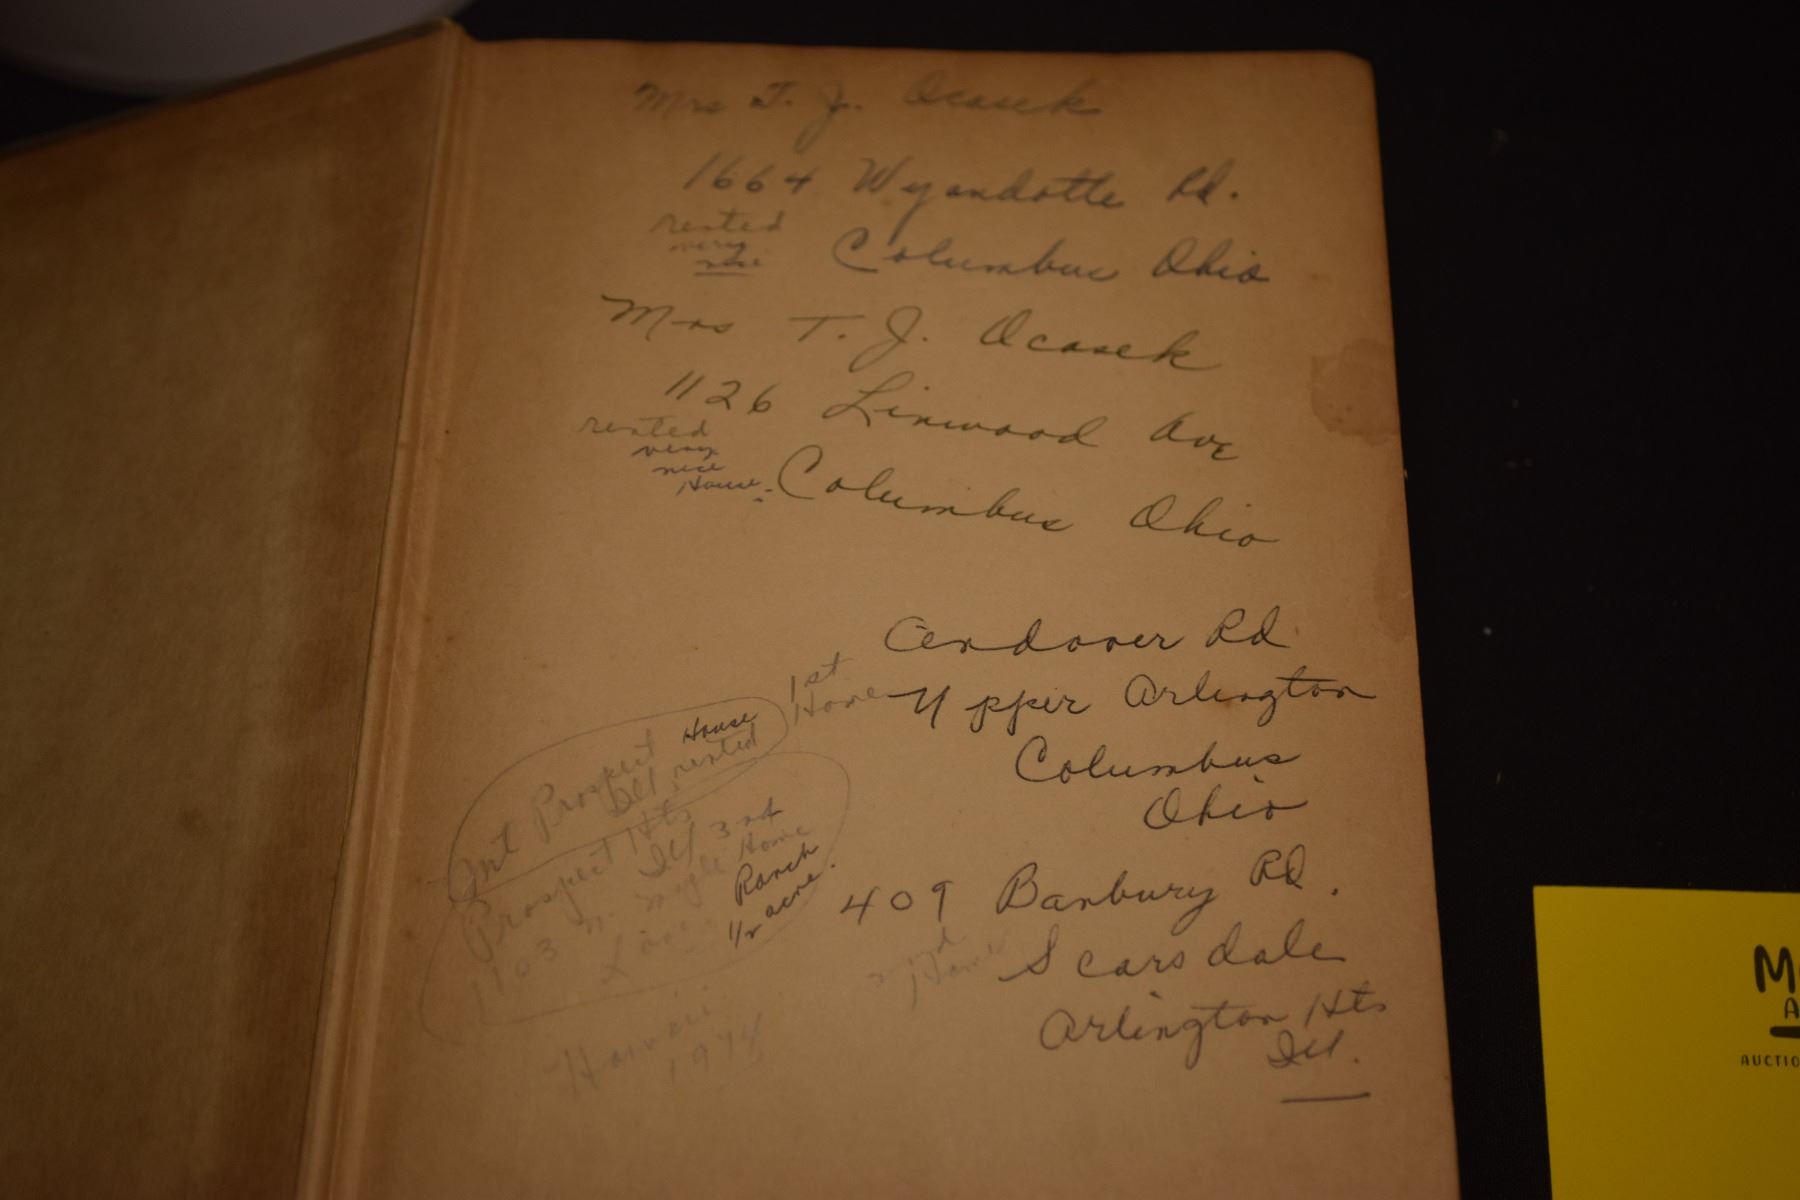 Mrs T. J. Ocasek
1664 Wyandotte Rd.
rented
very
nice
Columbus Ohio
Mrs T. J. Ocasek
1126 Linwood Ave
rented
very
nice
House.
Columbus Ohio
Andover Rd
1st
Home
Upper Arlington
Columbus
Ohio
Mt Prospect House
Ill. rented
Prospect Hts
Ill 3rd
1103 N. Maple Home
Lane Ranch
1/2 acre.
409 Banbury Rd.
2nd
Home
Scarsdale
Arlington Hts
Ill.
Hawaii
1974
AUCTIO